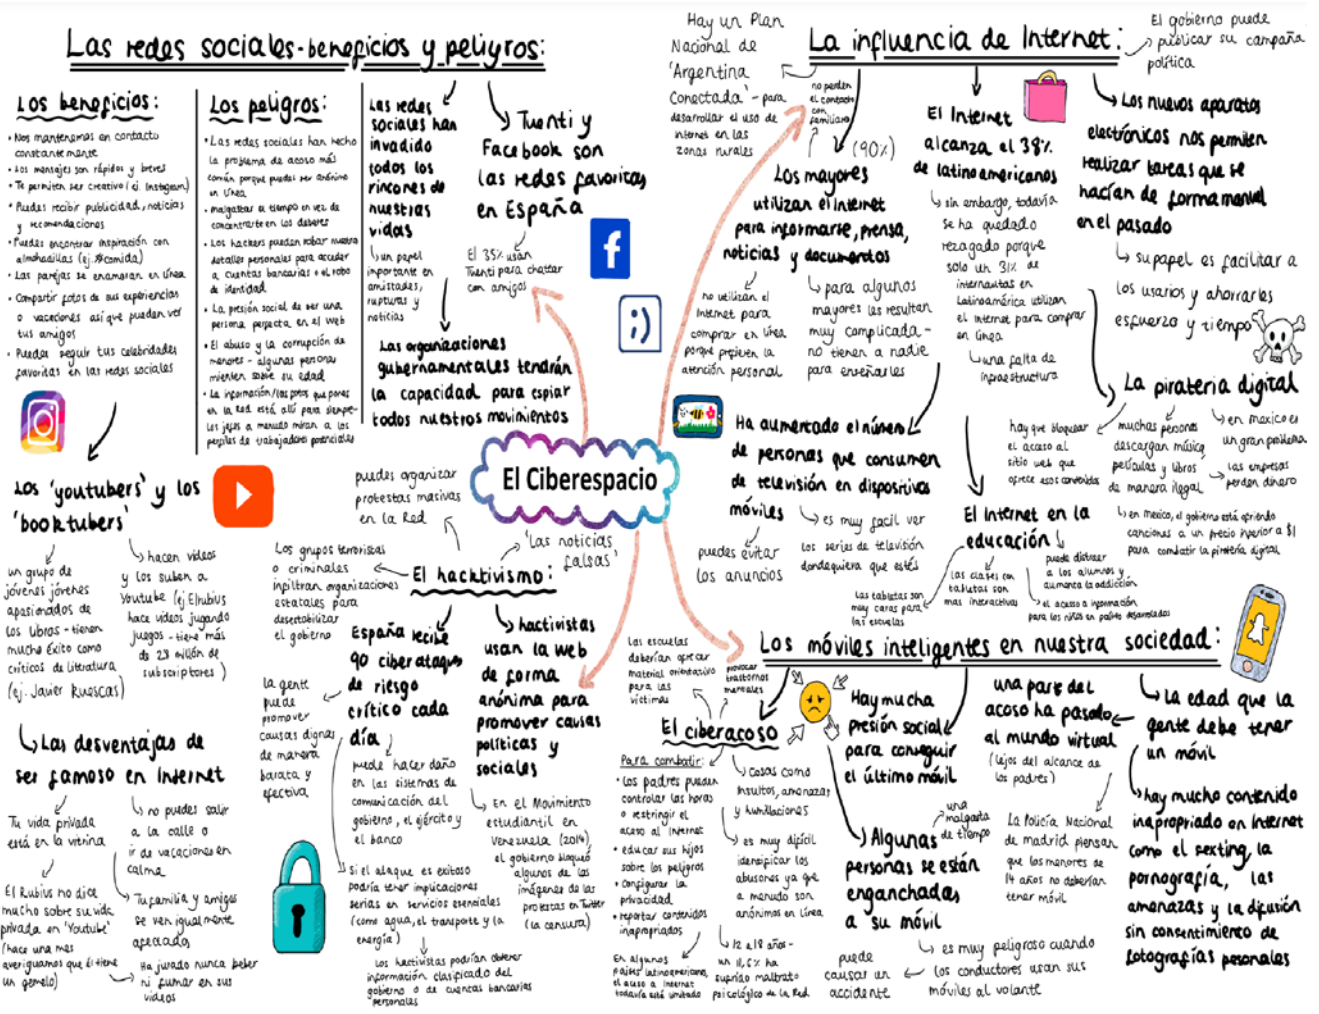 Las redes sociales-beneficios y peligros:
Los beneficios:
• Nos mantenemos en contacto
constantemente
• Los mensajes son rápidos y breves
• Te permiten ser creativo (ej. Instagram)
• Puedes recibir publicidad, noticias
y recomendaciones
• Puedes encontrar inspiración con
almohadillas (ej. #comida)
• Las parejas se enamoran en línea
• Compartir fotos de sus experiencias
o vacaciones así que pueden ver
tus amigos
• Puedes seguir tus celebridades
favoritas en las redes sociales
Los peligros:
• Las redes sociales han hecho
la problema de acoso más
común porque puedes ser anónimo
en línea
• malgastar el tiempo en vez de
concentrarte en los deberes
• Los hackers pueden robar nuestra
detalles personales para acceder
a cuentas bancarias o el robo
de identidad
• La presión social de ser una
persona perfecta en el web
• El abuso y la corrupción de
menores - algunas personas
mienten sobre su edad
• La información/las fotos que pones
en la red está allí para siempre-
los jefes a menudo miran a los
perfiles de trabajadores potenciales
Las redes
sociales han
invadido
todos los
rincones de
nuestras
vidas
un papel
importante en
amistades,
rupturas y
noticias
Tuenti y
Facebook son
las redes favoritas
en España
El 35% usan
Tuenti para chatear
con amigos
Las organizaciones
gubernamentales tendrán
la capacidad para espiar
todos nuestros movimientos
f
;)
Los 'youtubers' y los
'booktubers'
un grupo de
jóvenes jóvenes
apasionados de
los libros - tienen
mucho éxito como
críticos de literatura
(ej. Javier Ruescas)
hacen videos
y los suben a
Youtube (ej. Elrubius
hace videos jugando
juegos - tiene más
de 23 millón de
subscriptores)
Las desventajas de
ser famoso en Internet
Tu vida privada
está en la vitrina
El Rubius no dice
mucho sobre su vida
privada en 'Youtube'
(hace una mes
averiguamos que él tiene
un gemelo)
no puedes salir
a la calle o
ir de vacaciones en
calma
Tu familia y amigos
se ven igualmente
afectados
Ha jurado nunca beber
ni fumar en sus
videos
El Ciberespacio
El hacktivismo:
puedes organizar
protestas masivas
en la Red
'Las noticias
falsas'
Los grupos terroristas
o criminales
infiltran organizaciones
estatales para
desestabilizar
el gobierno
España recibe
90 ciberataques
de riesgo
crítico cada
día
la gente
puede
promover
causas dignas
de manera
barata y
efectiva
puede hacer daño
en las sistemas de
comunicación del
gobierno, el ejército y
el banco
Si el ataque es exitoso
podría tener implicaciones
serias en servicios esenciales
(como agua, el transporte y la
energía)
Los hacktivistas podrían obtener
información clasificado del
gobierno o de cuentas bancarias
personales
hactivistas
usan la web
de forma
anónima para
promover causas
políticas y
sociales
En el Movimiento
estudiantil en
Venezuela (2014)
el gobierno bloqueó
algunos de las
imágenes de las
protestas en Twitter
(la censura)
La influencia de Internet:
Hay un Plan
Nacional de
'Argentina
Conectada' - para
desarrollar el uso de
internet en las
zonas rurales
El gobierno puede
publicar su campaña
política
no pierden
el contacto
con
familiares
(90%)
Los mayores
utilizan el internet
para informarse, prensa,
noticias y documentos
no utilizan el
Internet para
comprar en línea
porque prefieren la
atención personal
para algunos
mayores les resultan
muy complicada -
no tienen a nadie
para enseñarles
El Internet
alcanza el 38%
de latinoamericanos
sin embargo, todavía
se ha quedado
rezagado porque
solo un 31% de
internautas en
Latinoamérica utilizan
el Internet para comprar
en línea
una falta de
infraestructura
Los nuevos aparatos
electrónicos nos permiten
realizar tareas que se
hacían de forma manual
en el pasado
su papel es facilitar a
los usarios y ahorrarles
esfuerzo y tiempo
La piratería digital
hay que bloquear
el acceso al
sitio web que
ofrece esos contenidos
muchas personas
descargan música,
películas y libros
de manera ilegal
en mexico es
un gran problema
las empresas
perden dinero
en mexico, el gobierno está ofriendo
canciones a un precio inferior a $1
para combatir la piratería digital
Ha aumentado el número
de personas que consumen
de televisión en dispositivos
móviles
puedes evitar
los anuncios
es muy facil ver
los series de televisión
dondequiera que estés
El Internet en la
educación
las tabletas son
muy caras para
las escuelas
las clases con
tabletas son
mas interactivas
puede distraer
a los alumnos y
aumenta la addicción
el acceso a información
para los niños en países desarrollados
Los móviles inteligentes en nuestra sociedad:
El ciberacoso
las escuelas
deberían ofrecer
material orientativo
para las
víctimas
provocar
trastornos
mentales
Para combatir:
• Los padres pueden
controlar las horas
o restringir el
acceso al Internet
• educar sus hijos
sobre los peligros
• configurar la
privacidad
• reportar contenidos
inapropriados
En algunos
países latinoamericanos,
el acceso a Internet
todavía está limitado
Cosas como
insultos, amenazas
y humillaciones
es muy difícil
identificar los
abusones ya que
a menudo son
anónimos en línea
12 a 18 años -
un 11,6% ha
sufrido maltrato
psicológico de la Red
Hay mucha
presión social
para conseguir
el último móvil
una
malgasta
de tiempo
Algunas
personas se están
enganchadas
a su móvil
es muy peligroso cuando
los conductores usan sus
móviles al volante
puede
causar un
accidente
una parte del
acoso ha pasado
al mundo virtual
(lejos del alcance de
los padres)
La Policía Nacional
de madrid piensan
que los menores de
14 años no deberían
tener móvil
La edad que la
gente debe tener
un móvil
hay mucho contenido
inapropriado en Internet
como el sexting, la
pornografía, las
amenazas y la difusión
sin consentimiento de
fotografías pesonales